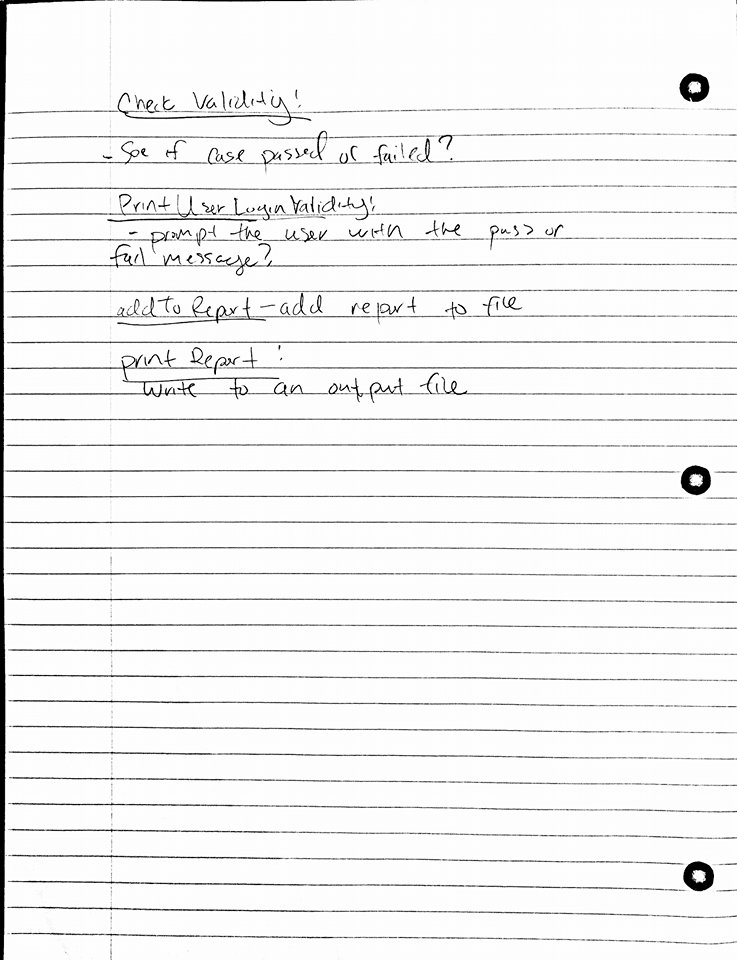 Check Validity!
- See if case passed or failed?
Print User Login Validity!
- prompt the user with the pass or
fail message?
add To Report - add report to file
print Report :
write to an output file